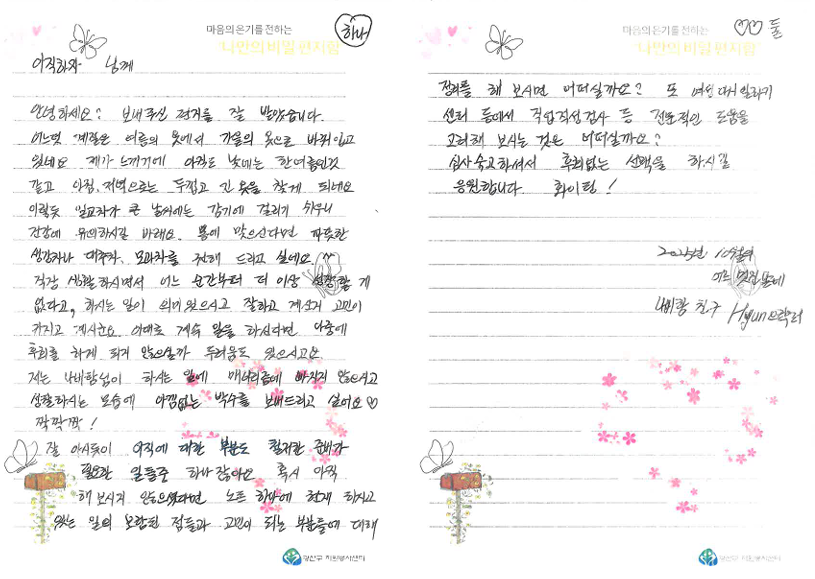 마음의 온기를 전하는
나만의 비밀 편지함
하나
이직하자 님께
안녕하세요? 보내주신 편지를 잘 받았습니다.
어느덧 계절은 여름의 옷에서 가을의 옷으로 바꿔 입고
있네요 제가 느끼기에 아직도 낮에는 한여름인것
같고 아침, 저녁으로는 두껍고 긴 옷을 찾게 되네요
이렇듯 일교차가 큰 날씨에는 감기에 걸리기 쉬우니
건강에 유의하시길 바래요. 몸에 맞으신다면 따뜻한
생강차나 대추차, 모과차를 권해 드리고 싶네요. ^^
직장 생활하시면서 어느 순간부터 더 이상 성장할 게
없다고, 하시는 일이 의미 있으시고 잘하고 계신지 고민이
커지고 계시군요. 이대로 계속 일을 하신다면 나중에
후회를 하게 되지 않을까 두려움도 있으시고요
저는 나비랑님이 하시는 일에 매너리즘에 빠지지 않으시고
성찰하시는 모습에 아낌없는 박수를 보내드리고 싶어요 ♡
짝짝짝!
잘 아시듯이 이직에 대한 부분도 철저한 준비가
필요한 일들중 하나 잖아요 혹시 아직
해 보시지 않으셨다면 노트 하나에 현재 하시고
있는 일의 보람된 점들과 고민이 되는 부분들에 대해
광산구 자원봉사센터
마음의 온기를 전하는
나만의 비밀 편지함
둘
정리를 해 보시면 어떠실까요? 또 여성 다시 일하기
센터 등에서 직업적성검사 등 전문적인 도움을
고려해 보시는 것은 어떠실까요?
심사숙고하셔서 후회없는 선택을 하시길
응원합니다. 화이팅!
2025년 10월의
어느 멋진 날에
나비랑 친구 Hyun으로부터
광산구 자원봉사센터